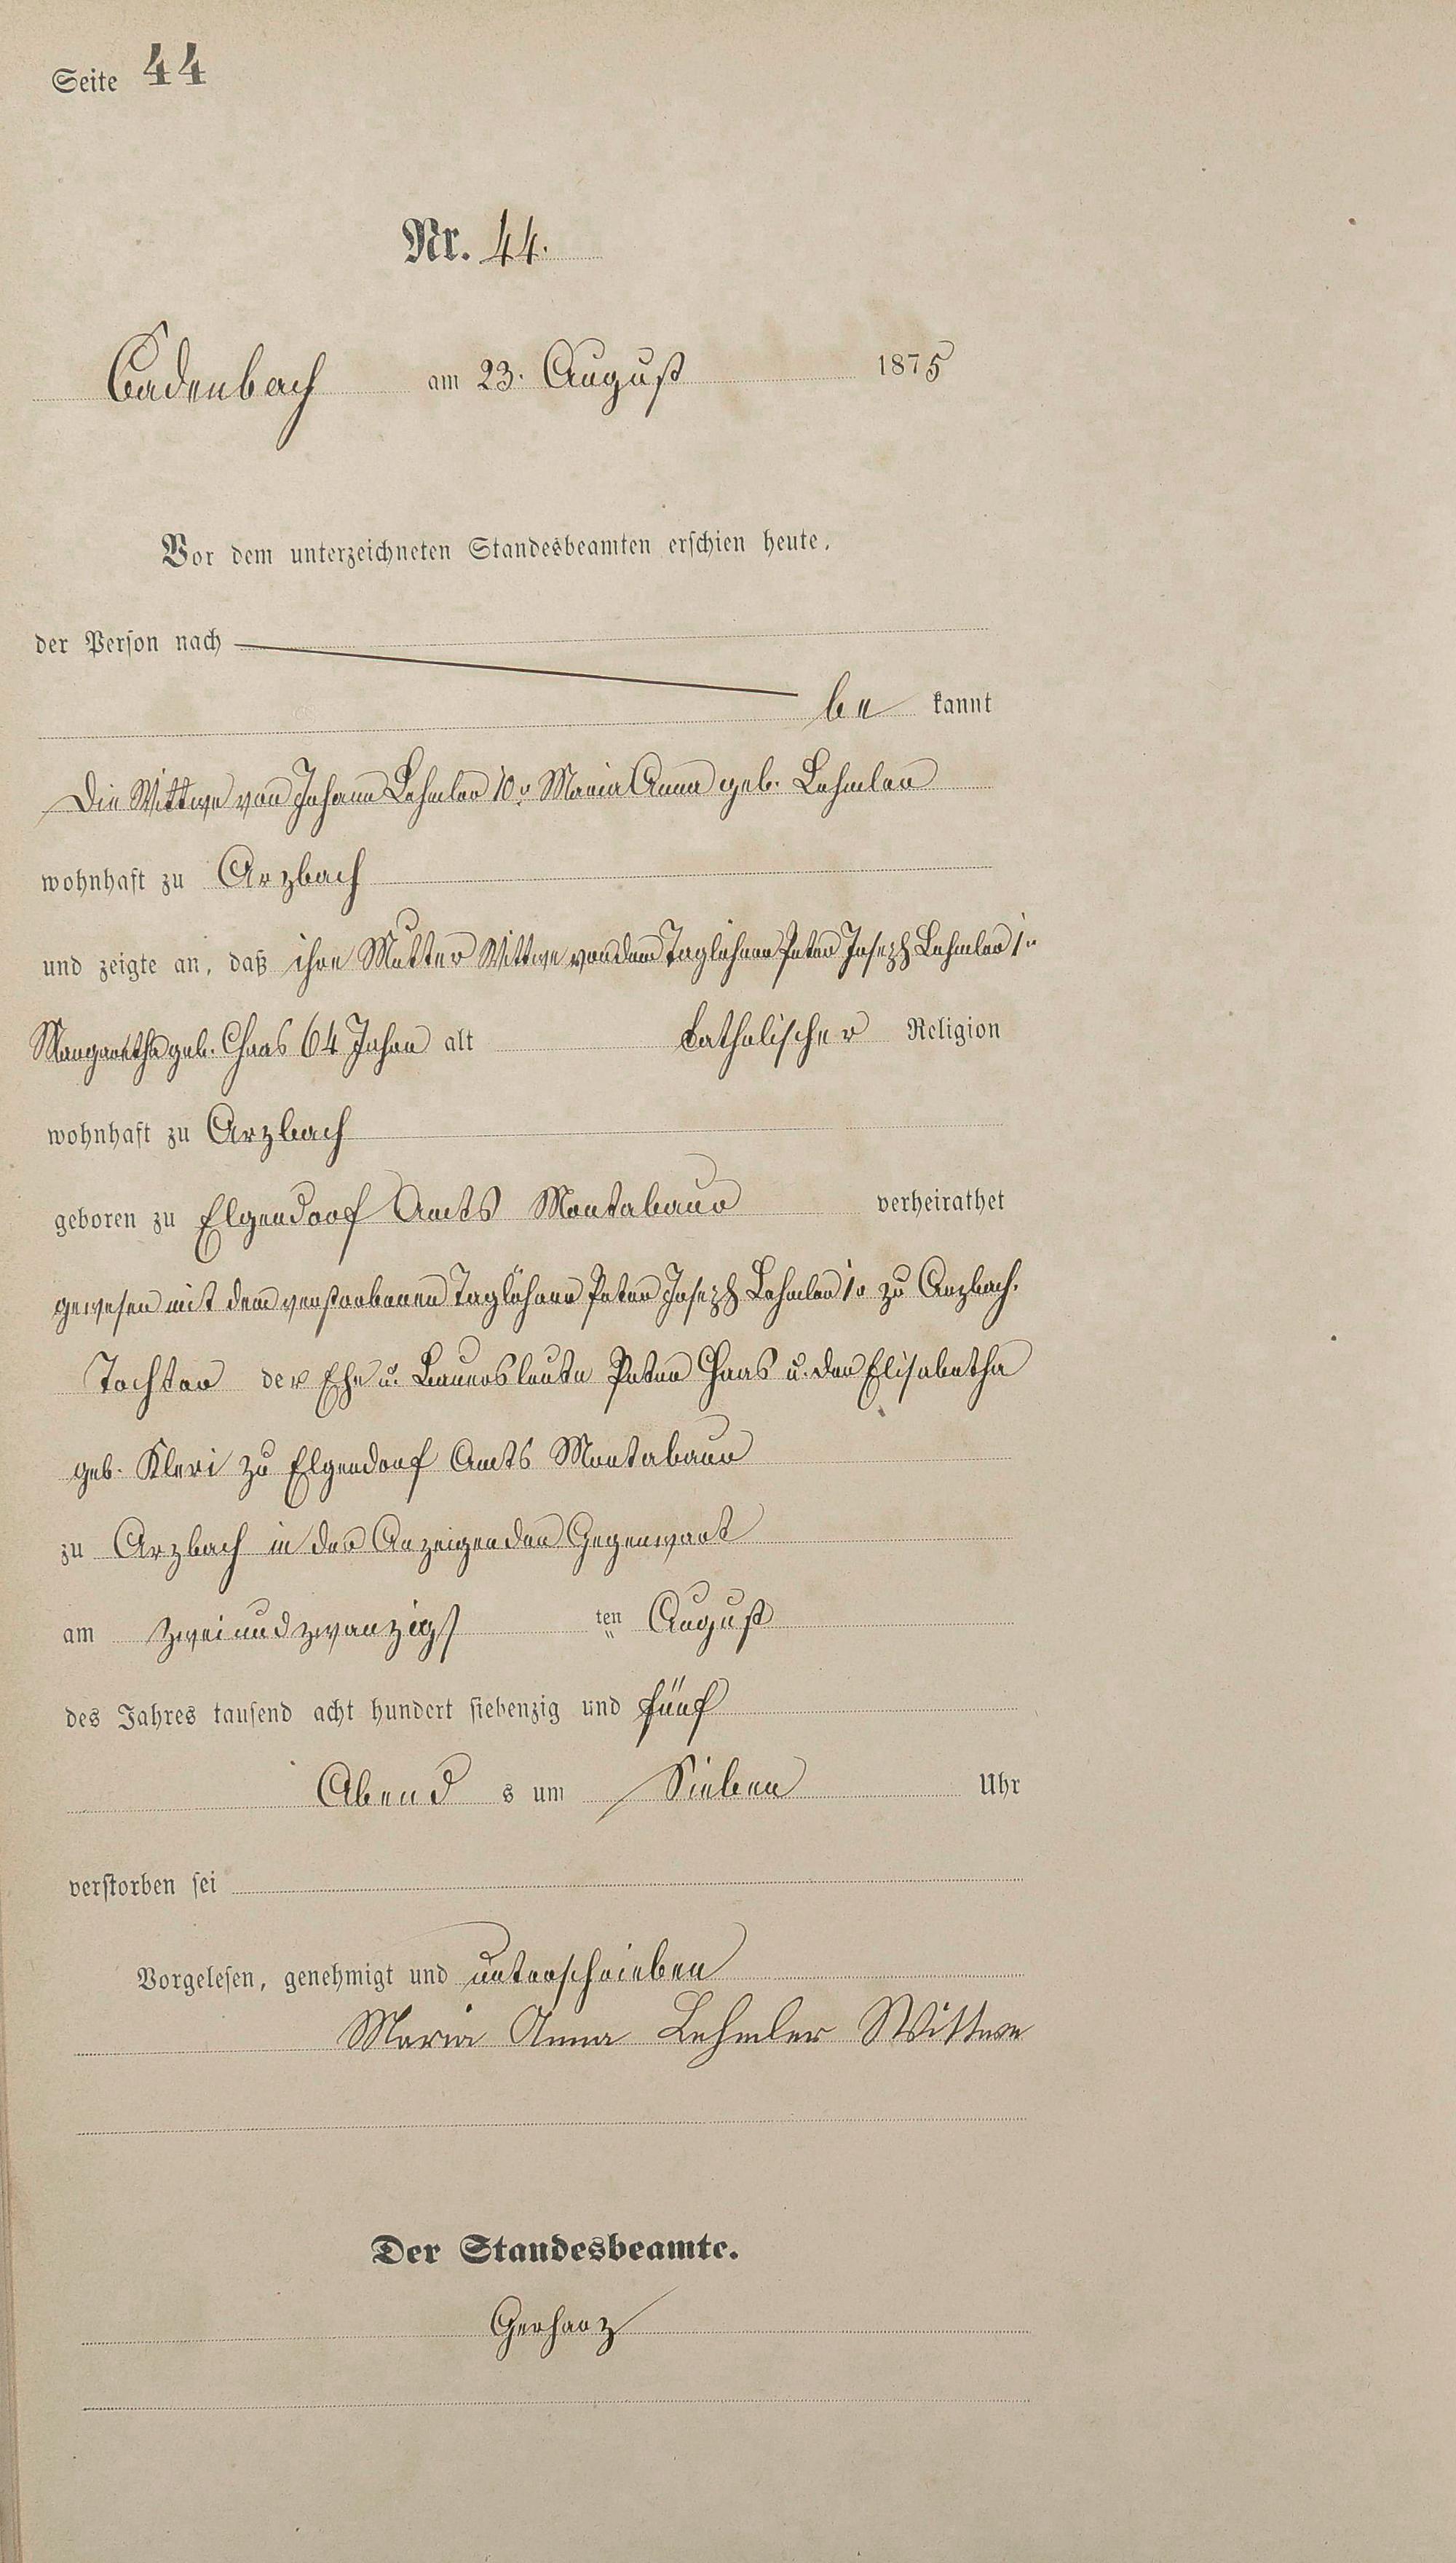 Seite 44
Nr. 44.
Cadenbach am 23. August 1875
Vor dem unterzeichneten Standesbeamten erschien heute,
der Person nach
be kannt
Die Wittwe von Johann Lehmler 10r Maria Anna geb. Lehmler
wohnhaft zu Arzbach
und zeigte an, daß ihre Mutter Wittwe von dem Taglöhner Peter Joseph Lehmler 1r
Margaretha geb. Chaas 64 Jahre alt katholischer Religion
wohnhaft zu Arzbach
geboren zu Elgendorf Amts Montabaur verheirathet
gewesen mit dem verstorbenen Taglöhner Peter Joseph Lehmler 1r zu Arzbach.
Tochter der Ehe u. Bauersleute Peter Chaas u. der Elisabetha
geb. Kleri zu Elgendorf Amts Montabaur
zu Arzbach in der Anzeigenden Gegenwart
am zweiundzwanzigs ten August
des Jahres tausend acht hundert siebenzig und fünf
Abend s um Sieben Uhr
verstorben sei
Vorgelesen, genehmigt und unterschrieben
Maria Anna Lehmler Wittwe
Der Standesbeamte.
Gerharz